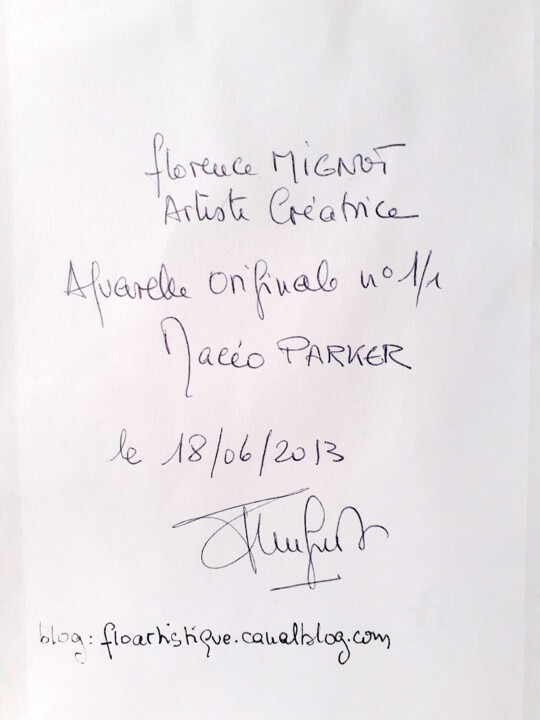 Florence MIGNOT
Artiste Créatrice
Aquarelle originale n° 1/1
Macéo PARKER
le 18/06/2013
blog: floartistique.canalblog.com